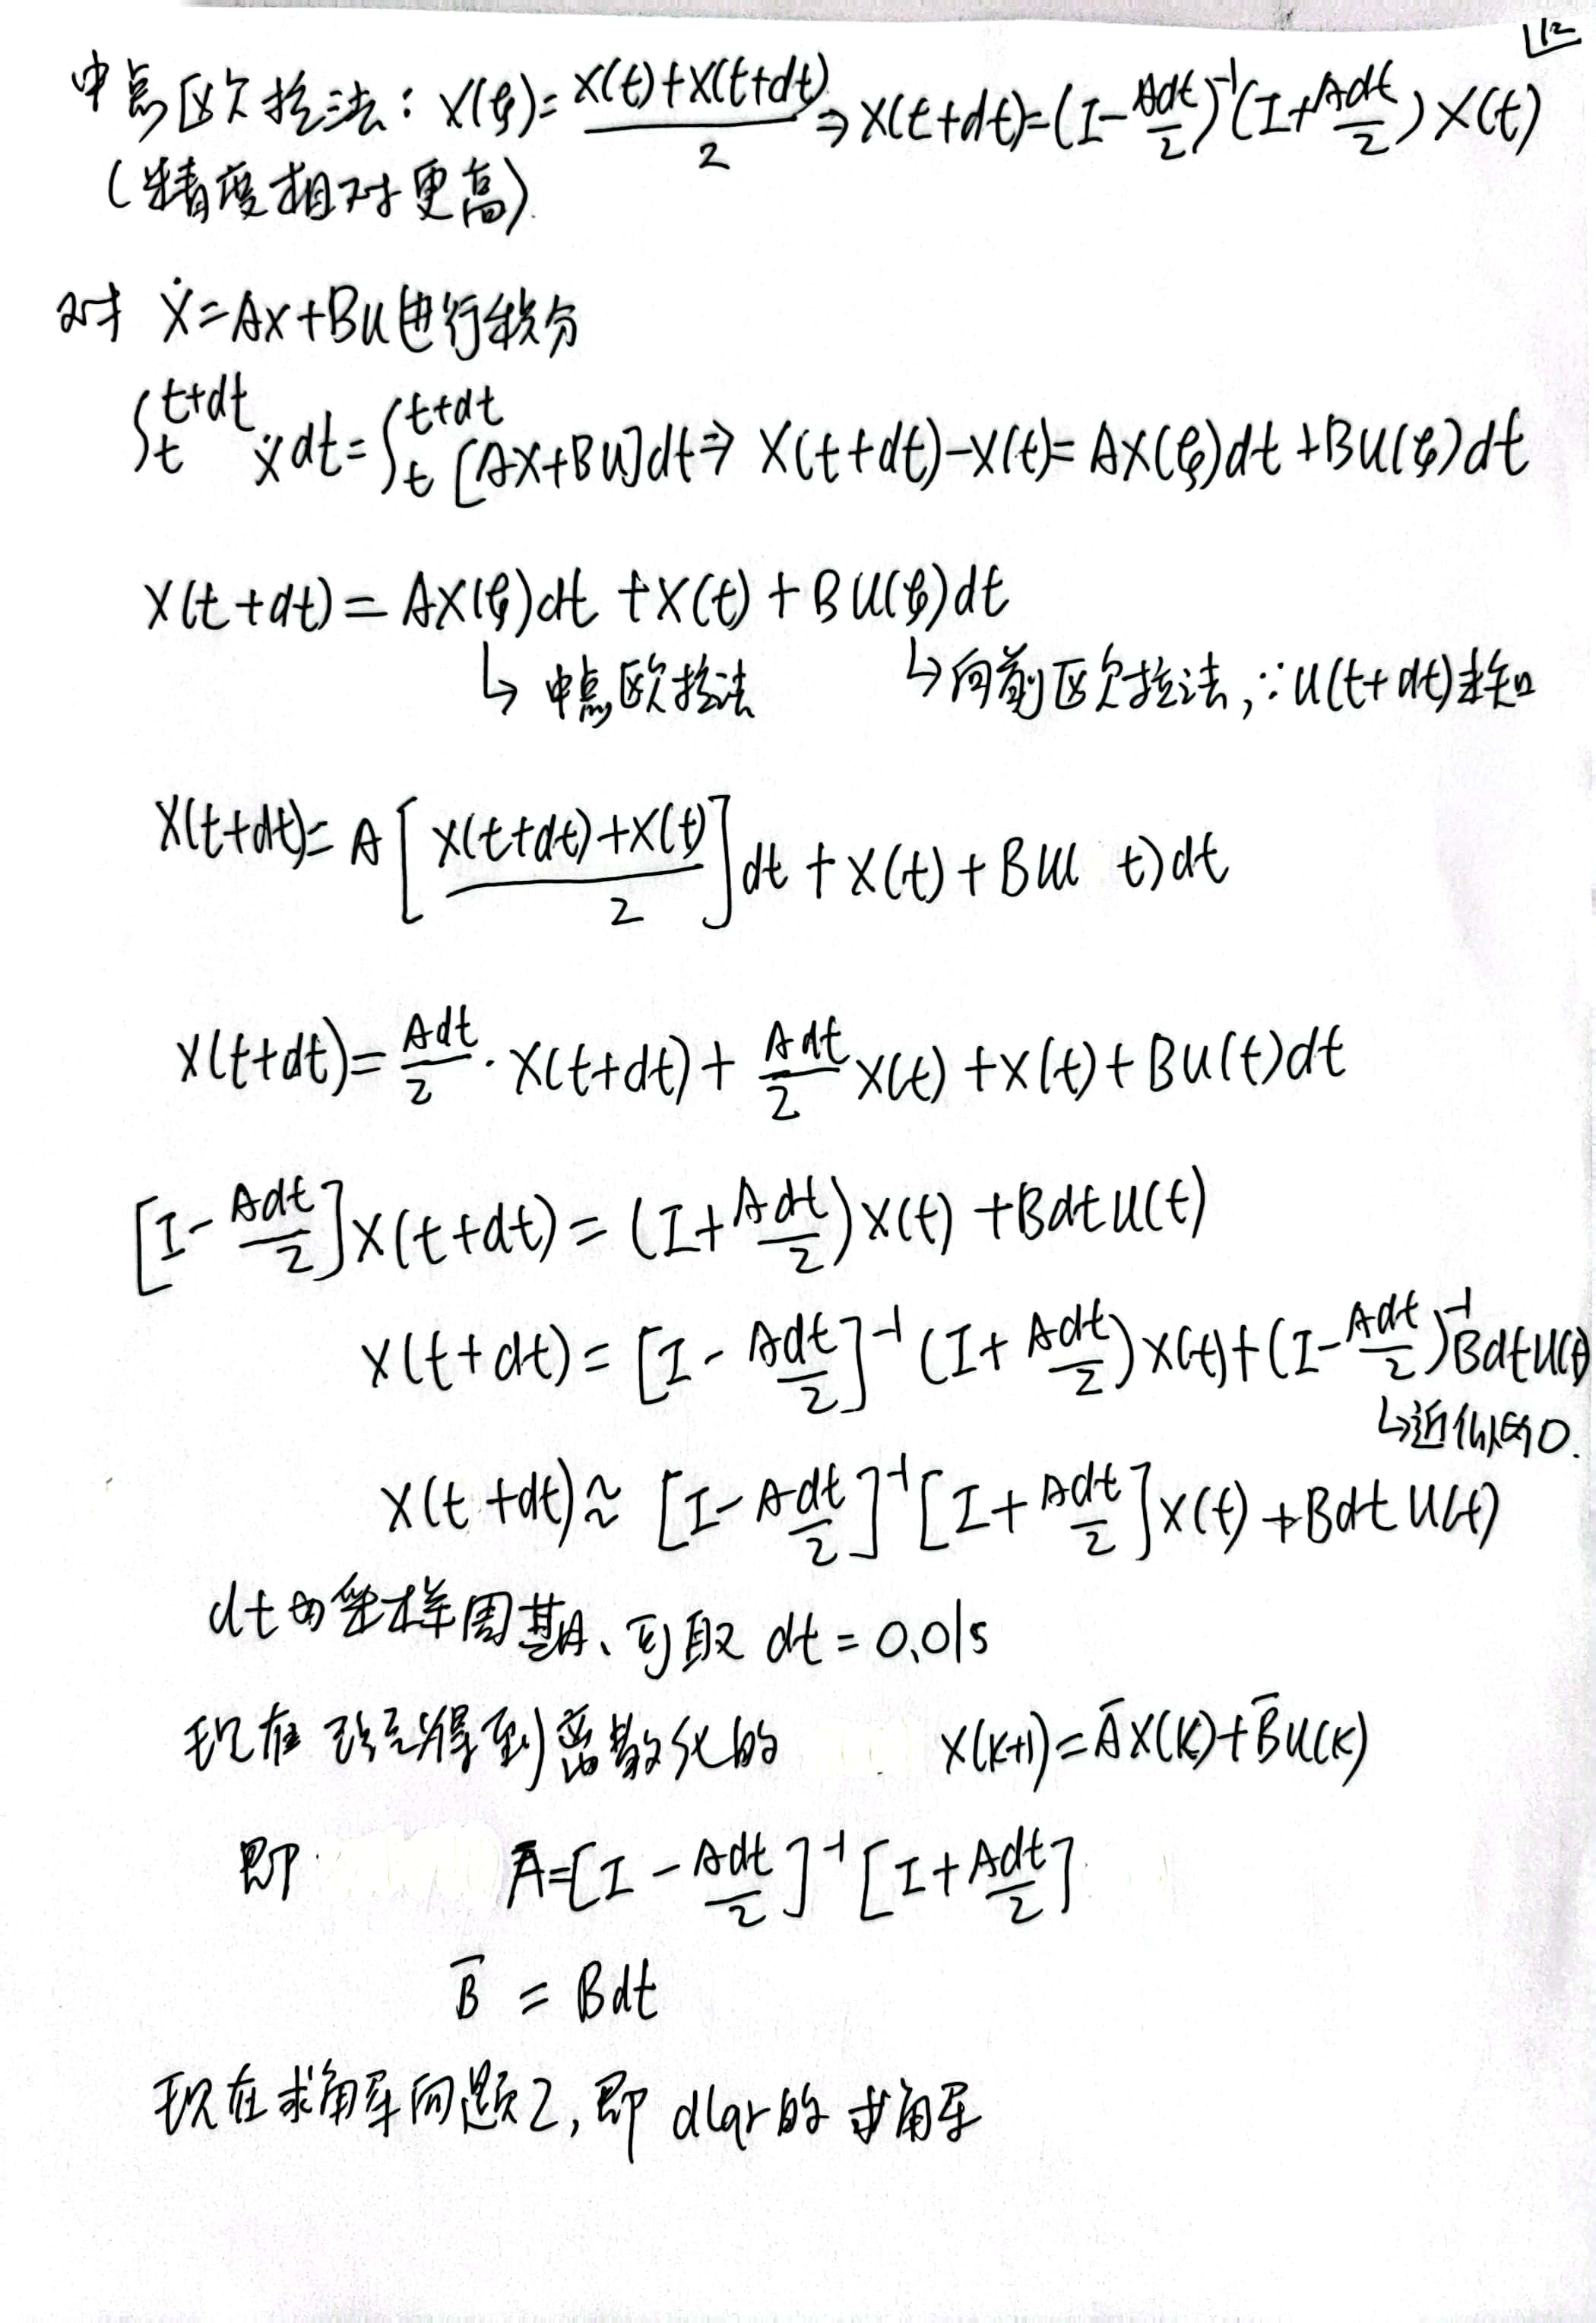 L12
中点欧拉法: X(ξ)=(X(t)+X(t+dt))/2 ⇒ X(t+dt)=(I-Adt/2)⁻¹(I+Adt/2)X(t)
(精度相对更高).
对 Ẋ=AX+BU进行积分
∫_t^{t+dt} Ẋdt=∫_t^{t+dt} [AX+BU]dt ⇒ X(t+dt)-X(t)=AX(ξ)dt+BU(ξ)dt
X(t+dt)=AX(ξ)dt+X(t)+BU(ξ)dt
↳中点欧拉法 ↳向前欧拉法,∵U(t+dt)未知
X(t+dt)=A[(X(t+dt)+X(t))/2]dt+X(t)+BU( t)dt
X(t+dt)=Adt/2·X(t+dt)+Adt/2 X(t)+X(t)+BU(t)dt
[I-Adt/2]X(t+dt)=(I+Adt/2)X(t)+BdtU(t)
X(t+dt)=[I-Adt/2]⁻¹(I+Adt/2)X(t)+(I-Adt/2)⁻¹BdtU(t)
↳近似的0.
X(t+dt)≈[I-Adt/2]⁻¹[I+Adt/2]X(t)+BdtU(t)
dt为采样周期、可取 dt=0.01s
现在 已经得到离散化的 X(k+1)=ĀX(k)+B̄U(k)
即 Ā=[I-Adt/2]⁻¹[I+Adt/2]
B̄=Bdt
现在求解问题2,即 dlqr的求解